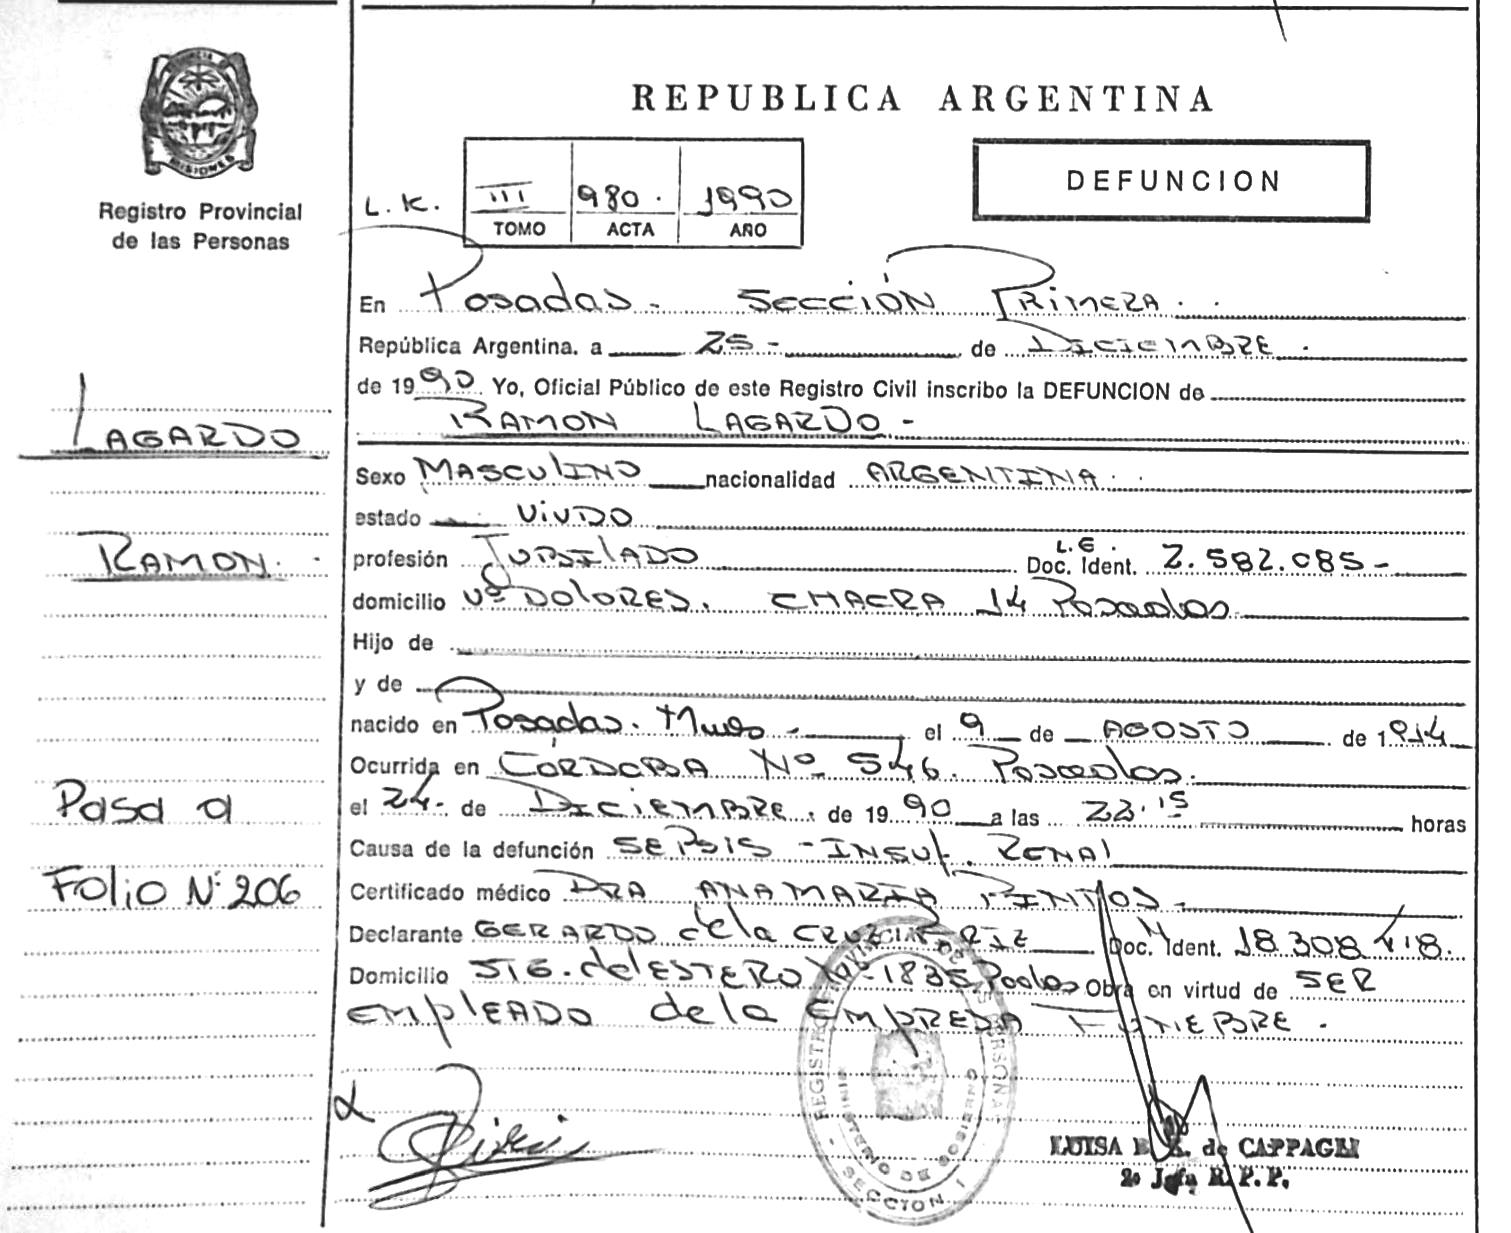 PROVINCIA DE
MISIONES
Registro Provincial
de las Personas
LAGARDO
RAMON.
Pasa a
Folio Nº 206
REPUBLICA ARGENTINA
DEFUNCION
L. K. III 980. 1990
TOMO ACTA AÑO
En Posadas - Sección Primera.
República Argentina, a 25- de Diciembre.
de 1990 Yo, Oficial Público de este Registro Civil inscribo la DEFUNCION de
RAMON LAGARDO -
Sexo MASCULINO nacionalidad ARGENTINA.
estado VIUDO
profesión JUBILADO L.E. Doc. Ident. 2.582.085-
domicilio Vª DOLORES. CHACRA 14 Posadas
Hijo de
y de
nacido en Posadas. Mnes - el 9 de AGOSTO de 1914
Ocurrida en CÓRDOBA Nº 546. Posadas.
el 24- de DICIEMBRE. de 1990 a las 22.15 horas
Causa de la defunción SEPSIS - INSUF. RENAL
Certificado médico DRA ANA MARIA PINTOS -
Declarante GERARDO de la CRUZ Doc. Ident. 18.308.418.
Domicilio STG. del ESTERO Nº 1835 Posadas Obra en virtud de SER
EMPLEADO de la EMPRESA FUNEBRE.
REGISTRO PROVINCIAL DE LAS PERSONAS
MINISTERIO DE GOBIERNO
SECCION 1
LUISA de CAPPAGLI
2º Jefa R. P. P.